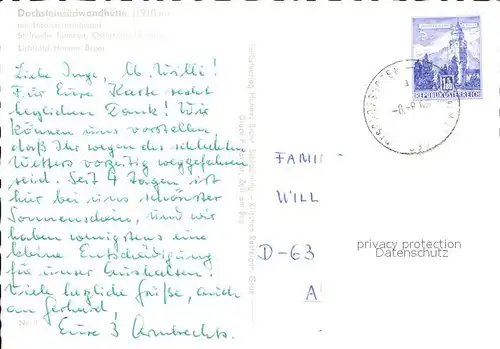 Dachsteinsüdwandhütte, 1910 m
Liebe Inge, lb. Willi!
Für Eure Karte recht
herzlichen Dank! Wir
können uns vorstellen,
daß Ihr wegen des schlechten
Wetters vorzeitig weggefahren
seid. Seit 4 Tagen ist
hier bei uns schönster
Sonnenschein, und wir
haben wenigstens eine
kleine Entschädigung
für unser Aushalten!
Viele herzliche Grüße, auch
an Gerhard,
Eure 3 Armbrechts.
REPUBLIK ÖSTERREICH
FAMI
WILL
D-63
A
privacy protection
Datenschutz